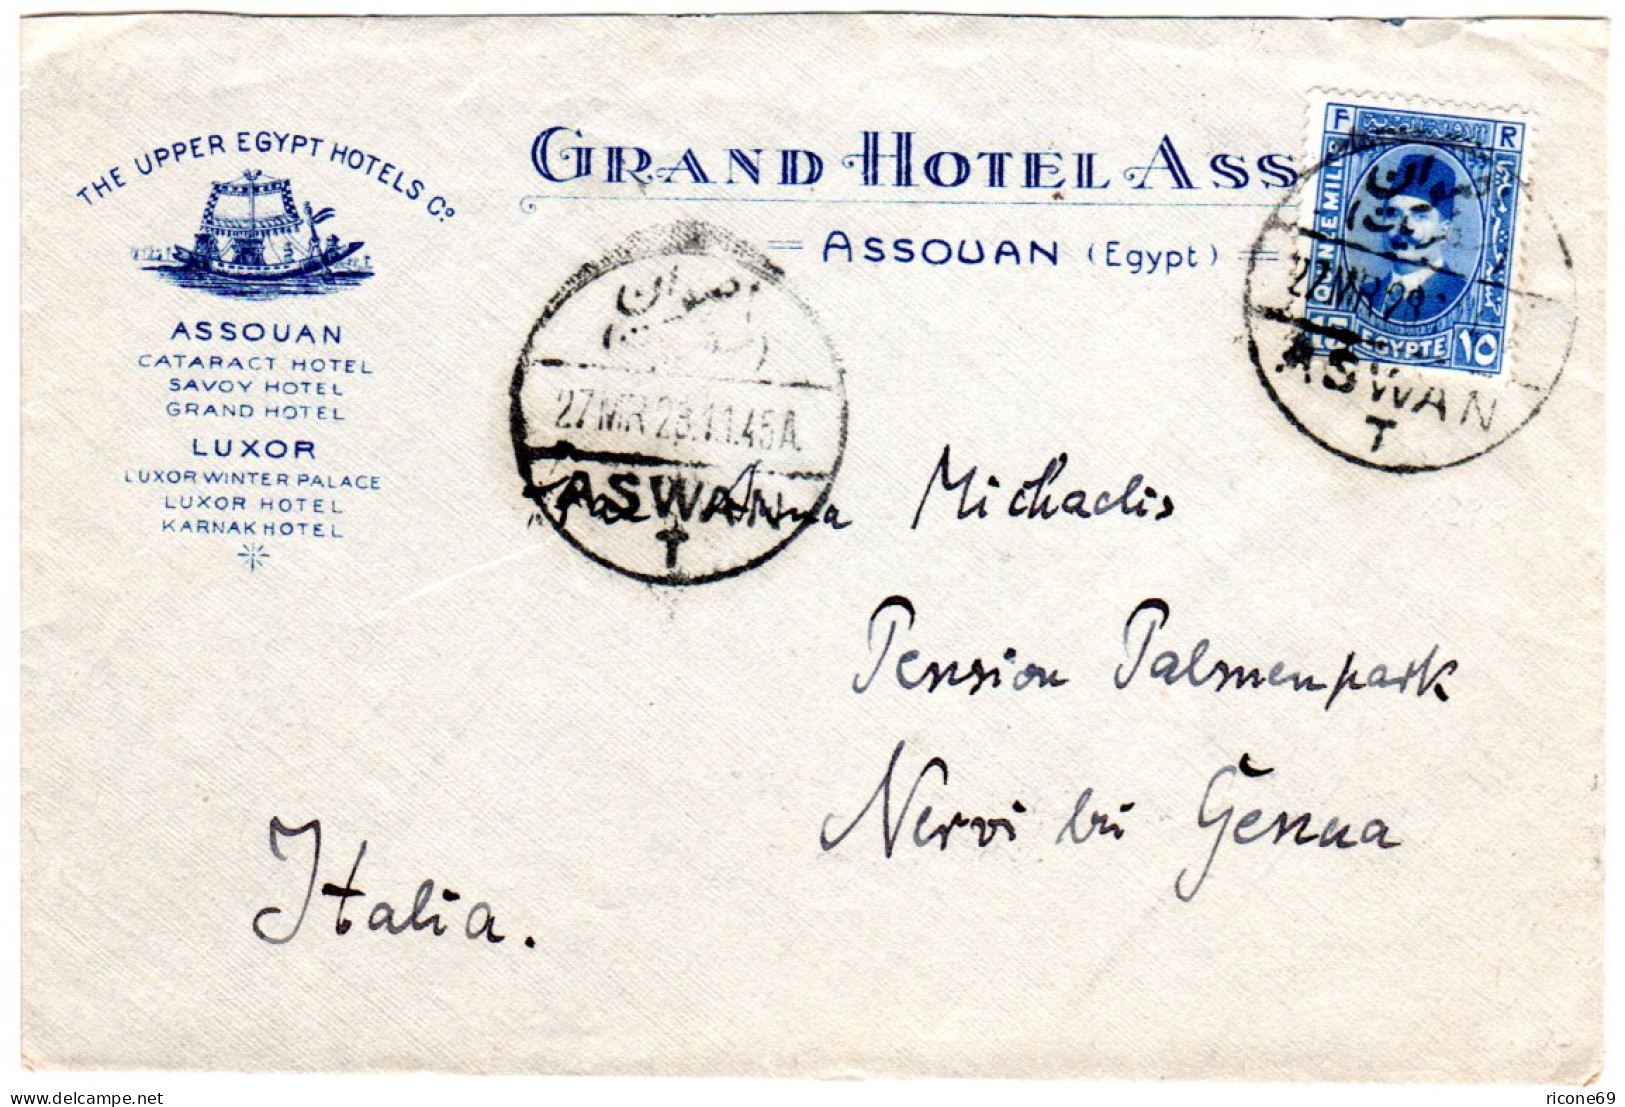 THE UPPER EGYPT HOTELS Co.
GRAND HOTEL ASS
ASSOUAN (Egypt)
ASSOUAN
CATARACT HOTEL
SAVOY HOTEL
GRAND HOTEL
LUXOR
LUXOR WINTER PALACE
LUXOR HOTEL
KARNAK HOTEL
F R
QUINZE MILL
15 EGYPTE ١٥
27 MR 29
ASWAN
T
اصوان
27 MR 11.45 A.
ASWAN
T
Anna Michaelis
Pension Palmenpark
Nervi bei Genua
Italia.
delcampe.net
ricone69